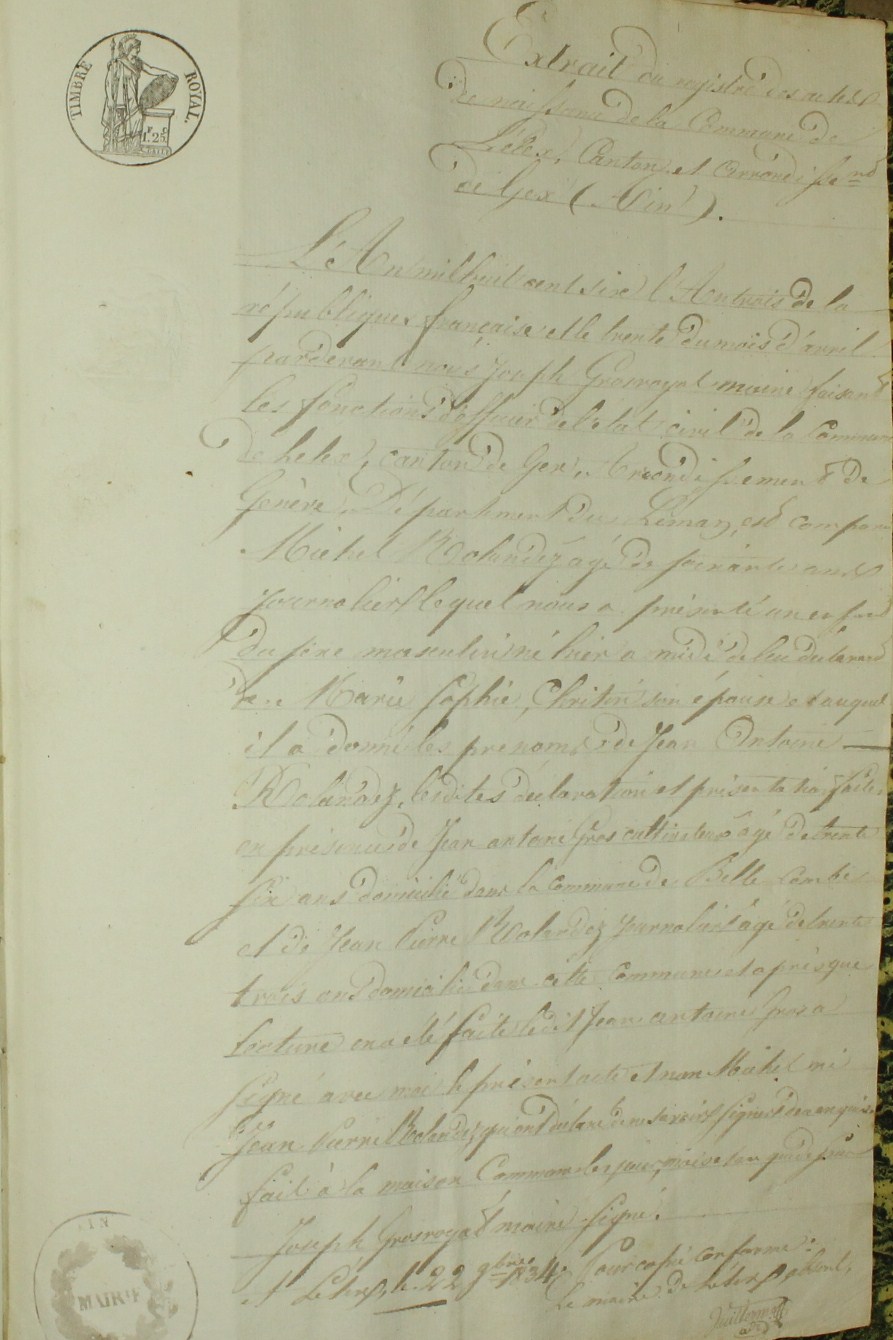 TIMBRE ROYAL.
1. 25
Extrait du registre des actes
de naissance de la Commune de
Lélex, Canton et arrondissent
de Gex (Ain).
L'An mil huit cent six l'An trois de la
république française et le trente du mois d'avril
pardevant nous Joseph Grosroyat maire faisant
les fonctions d'officier de l'état civil de la Commune
de Lelex, canton de Gex, Arrondissement de
Genève Département du Léman, est comparu
Michel Rolandez agé de soixante ans
Journalier lequel nous a présenté un enfant
du sexe masculin né hier a midi de lui déclarant
de Marie Sophie Christin son épouse et auquel
il a donné les prenoms de Jean Antoine
Rolandez, lesdites déclaration et présentation faites
en présence de Jean antoine Gros cultivateur agé de trente
six ans domicilié dans la commune de Belle combe
et de Jean Pierre Rolandez Journalier agé de trente
trois ans domicilié dans cette commune et après que
lecture en a été faite ledit Jean antoine Gros a
signé avec moi le présent acte et non Michel ni
Jean Pierre Rolandez qui ont déclaré ne savoir signer de ce enquis
fait à la maison Commune les jour, mois et an que dessus
Joseph Grosroyat maire signé.
A Lélex, le 22 9bre 1834. Pour copie conforme:
Le maire de Lélex absent,
AIN
MAIRIE